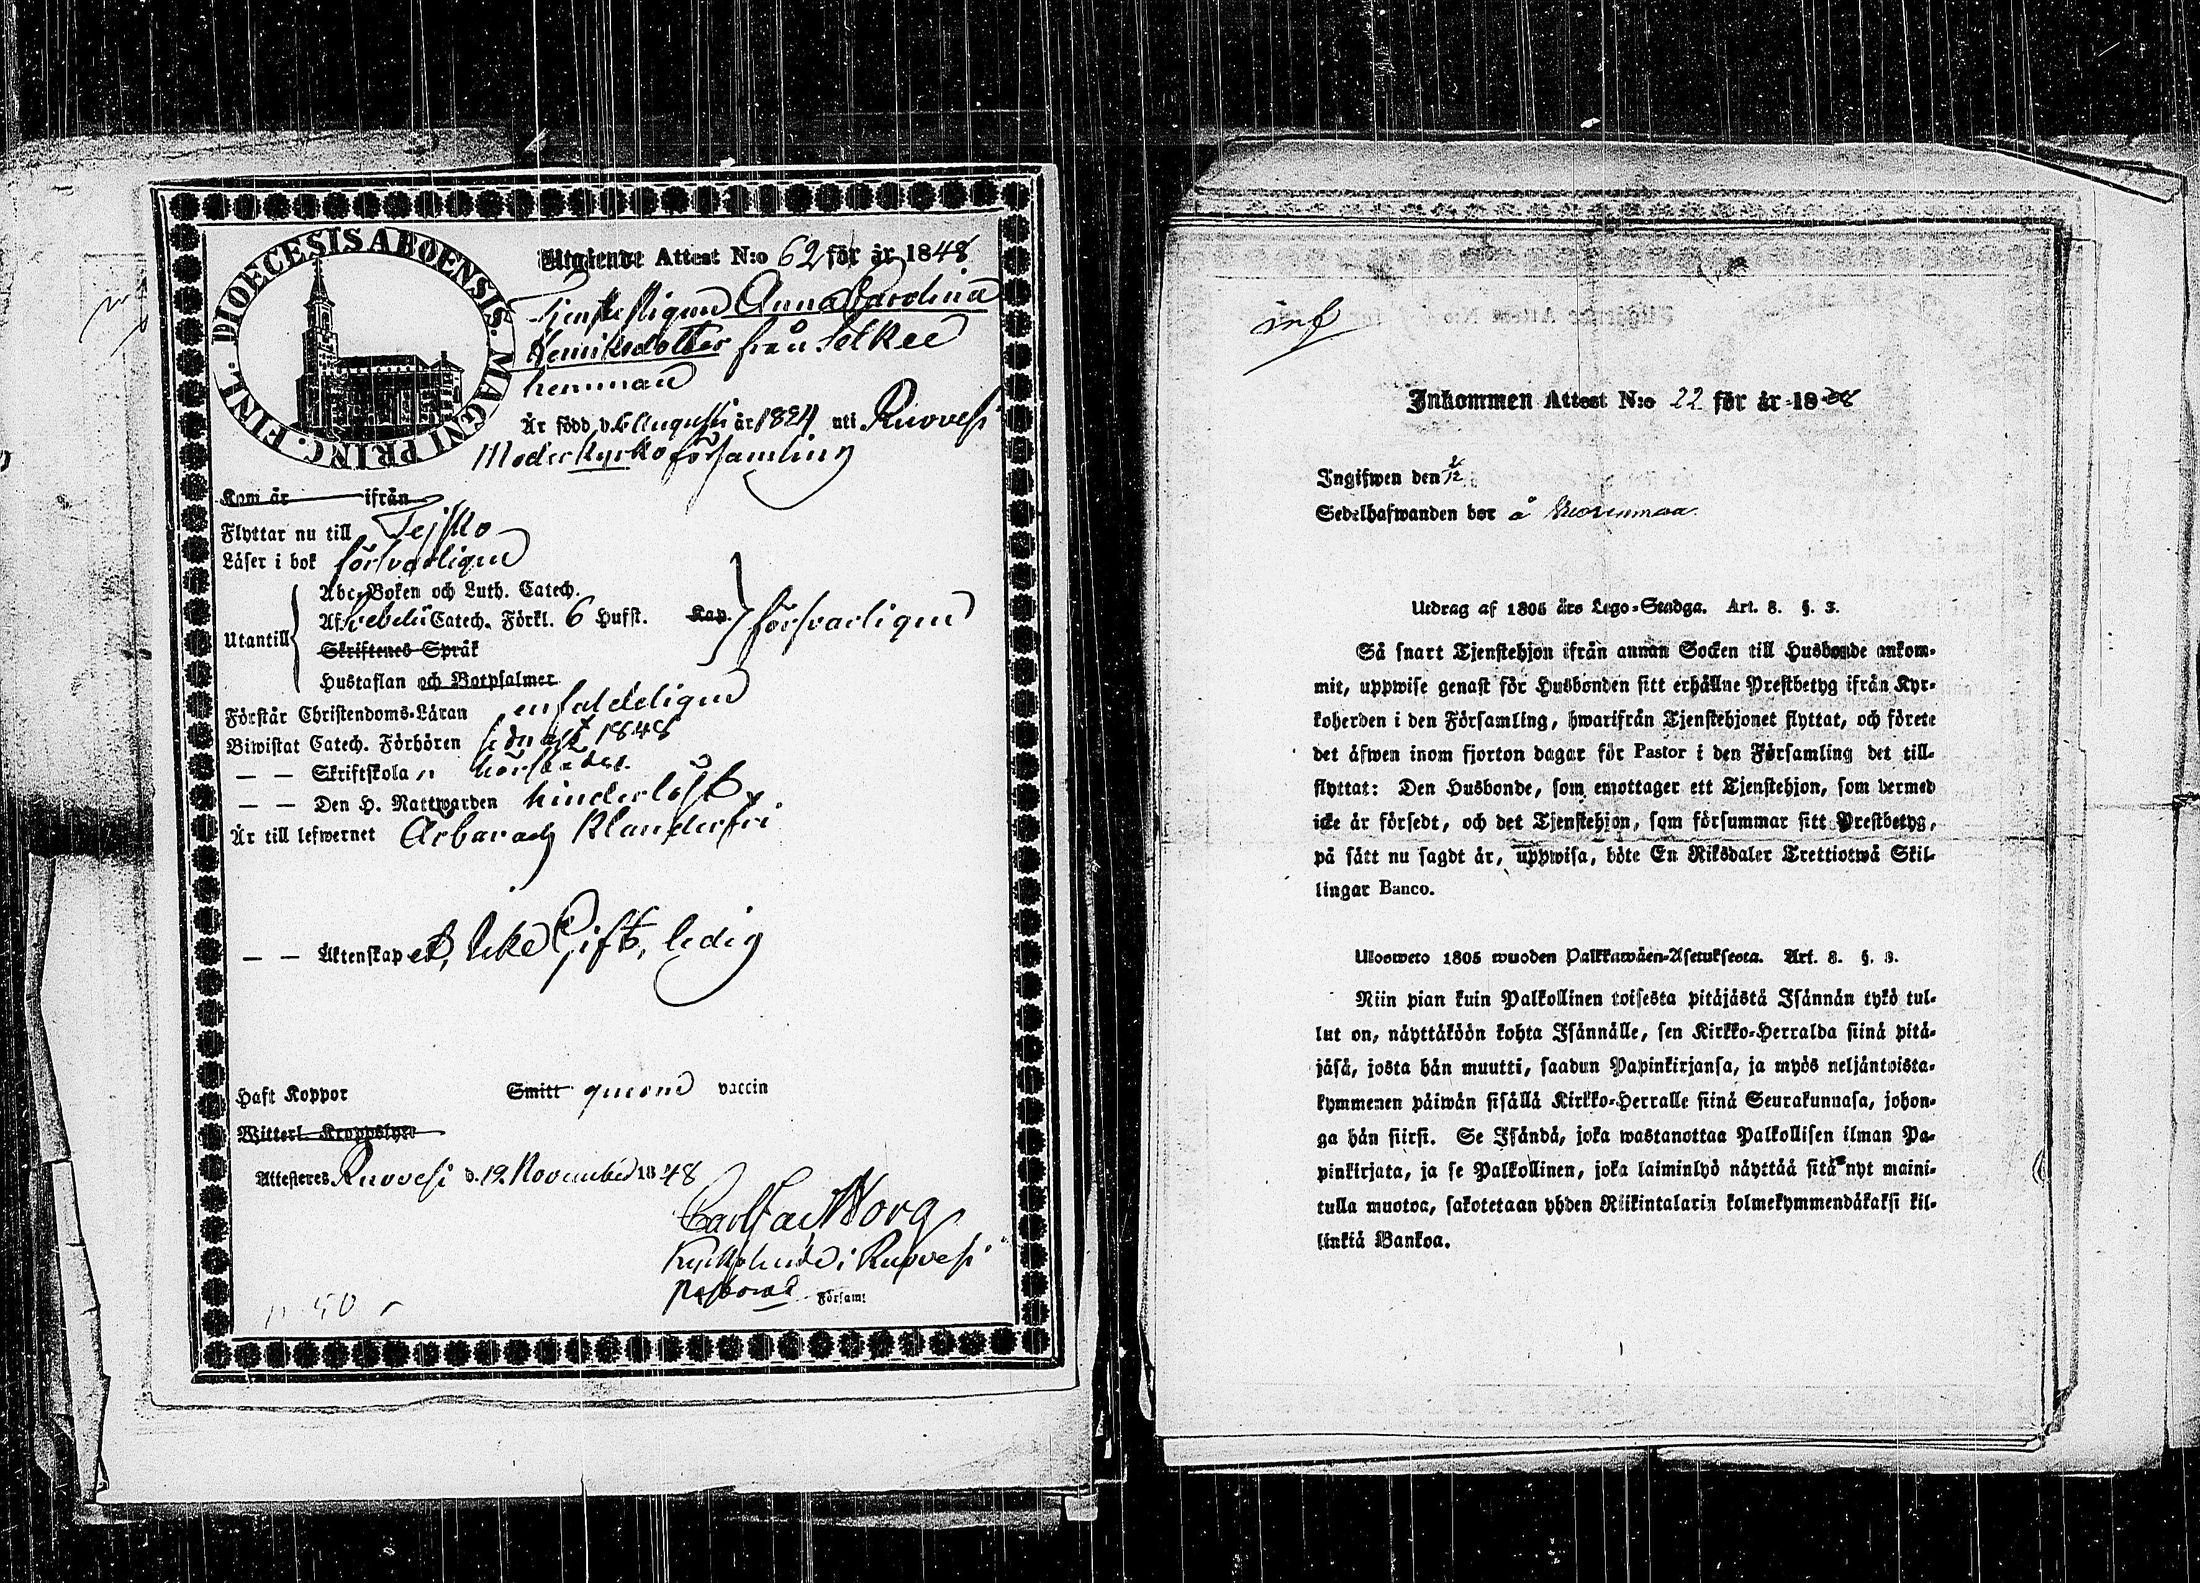 DIOECESIS ABOENSIS. MAGNI PRINC. FINL.
Utgående Attest N:o 62 för år 1848
Tjenstepigan Anna Carolina
Henriksdotter från Selkee
hemman
Är född d. 6 Augusti år 1824 uti Ruovesi
Moderkyrko församling
Kom år ifrån
Flyttar nu till Teisko
Läser i bok försvarligen
Utantill
Abc-Boken och Luth. Catech.
Af Svebelii Catech. Förkl. 6 Hufst. Kap. försvarligen
Skriftenes Språk
Hustaflan och Botpsalmer
Förstår Christendoms-Läran enfaldeligen
Biwistat Catech. Förhören sednast 1848
— — Skriftskola
— — Den H. Nattwarden hinderlöst
Är till lefwernet Ärbar och Klanderfri
— — Äktenskap ej, icke Gift, ledig
Haft Koppor Smitt genom vaccin
Witterl. Kroppslyte
Attesteres Ruovesi d. 19 November 1848
Kyrkoherde i Ruovesi
Pastorat Församl
n 50
inf
Inkommen Attest N:o 22 för år 1848
Ingifwen den
Sedelhafwanden bor å Kuorinmaa
Utdrag af 1805 års Lego-Stadga. Art. 8. §. 3.
Så snart Tjenstehjon ifrån annan Socken till Husbonde ankom-
mit, uppwise genast för Husbonden sitt erhållne Prestbetyg ifrån Kyr-
koherden i den Församling, hwarifrån Tjenstehjonet flyttat, och förete
det äfwen inom fjorton dagar för Pastor i den Församling det till-
flyttat: Den Husbonde, som emottager ett Tjenstehjon, som dermed
icke är försedt, och det Tjenstehjon, som försummar sitt Prestbetyg,
på sätt nu sagdt är, uppwisa, böte En Riksdaler Trettiotwå Skil-
lingar Banco.
Ulosweto 1805 wuoden Palkkawäen-Asetuksesta. Art. 8. §. 3.
Niin pian kuin Palkollinen toisesta pitäjästä Isännän tykö tul-
lut on, näyttäköön kohta Isännälle, sen Kirkko-Herralda siinä pitä-
jäsä, josta hän muutti, saadun Papinkirjansa, ja myös neljäntoista-
kymmenen päiwän sisällä Kirkko-Herralle siinä Seurakunnasa, johon-
ga hän siirsi. Se Isändä, joka wastanottaa Palkollisen ilman Pa-
pinkirjata, ja se Palkollinen, joka laiminlyö näyttää sitä nyt maini-
tulla muotoa, sakotetaan yhden Riikintalarin kolmekymmendäkaksi kil-
linkiä Bankoa.